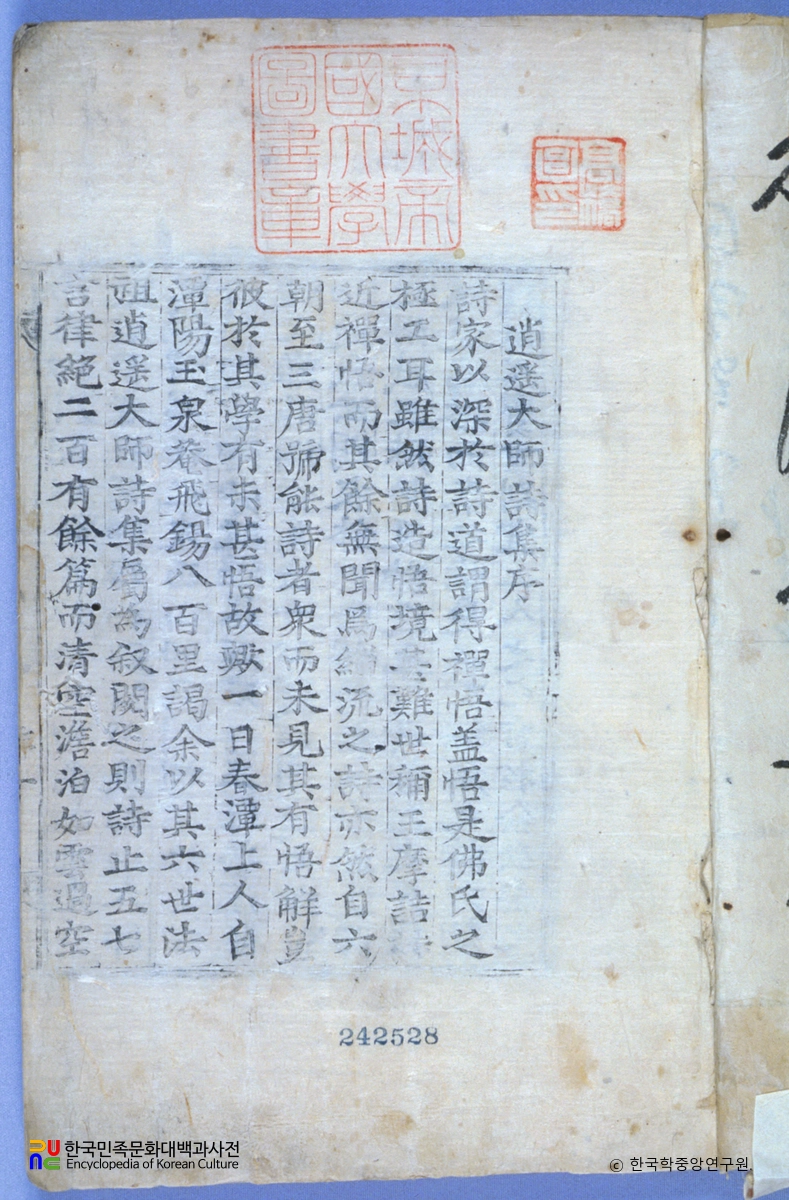 京城帝
國大學
圖書章
逍遥大師詩集序
詩家以深於詩道謂得禪悟盖悟是佛氏之
極工耳雖然詩造悟境甚難世稱王摩詰詩
近禪悟而其餘無聞焉緇流之詩亦然自六
朝至三唐號能詩者衆而未見其有悟解豈
彼於其學有未甚悟故歟一日春潭上人自
潭陽玉泉菴飛錫八百里謁余以其六世法
祖逍遥大師詩集屬爲叙閱之則詩止五七
言律絶二百有餘篇而清空澹泊如雲過空
242528
한국민족문화대백과사전
Encyclopedia of Korean Culture
© 한국학중앙연구원